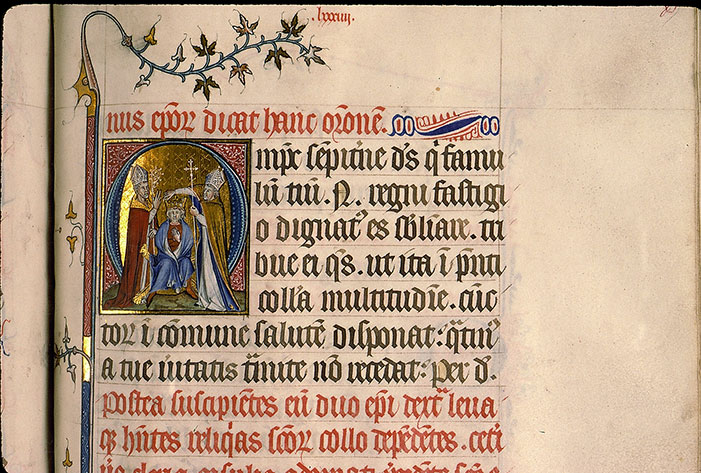 .lxxxiiii.
nus ep̄oꝝ dicat hanc or̄onē.
Om̄pc̄ sēpit̄ne d̄s q̇ famu
lū tuū. N. regni fastigi
o dignatꝰ es sb̄limare. tri
bue ei q̄s. ut ita ī p̄nti
coll'a multitudīe. cūc
toꝝ ī cōmune salutē disponat: qͣtinꝰ
a tue uitatis tͣmite nō recedat: per d̄.
postea suscipiētes eū duo ep̄i dextͣ leua
qꝫ hn̄tes reliq̇as sc̄oꝝ collo depēdētes. ceti